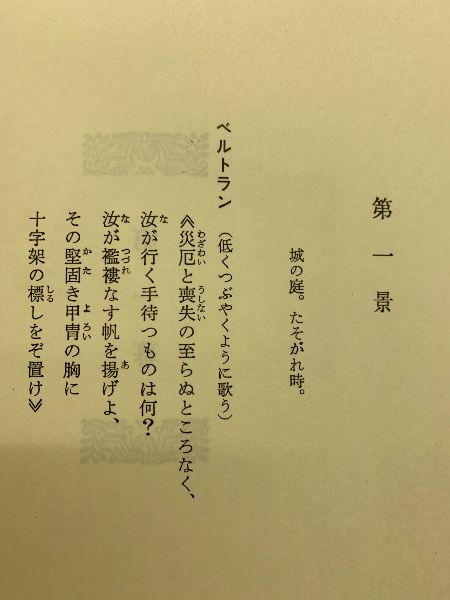 第一景
城の庭。たそがれ時。
ベルトラン（低くつぶやくように歌う）
《災厄と喪失の至らぬところなく、
汝が行く手待つものは何？
汝が襤褸なす帆を揚げよ、
その堅固き甲冑の胸に
十字架の標しをぞ置け》